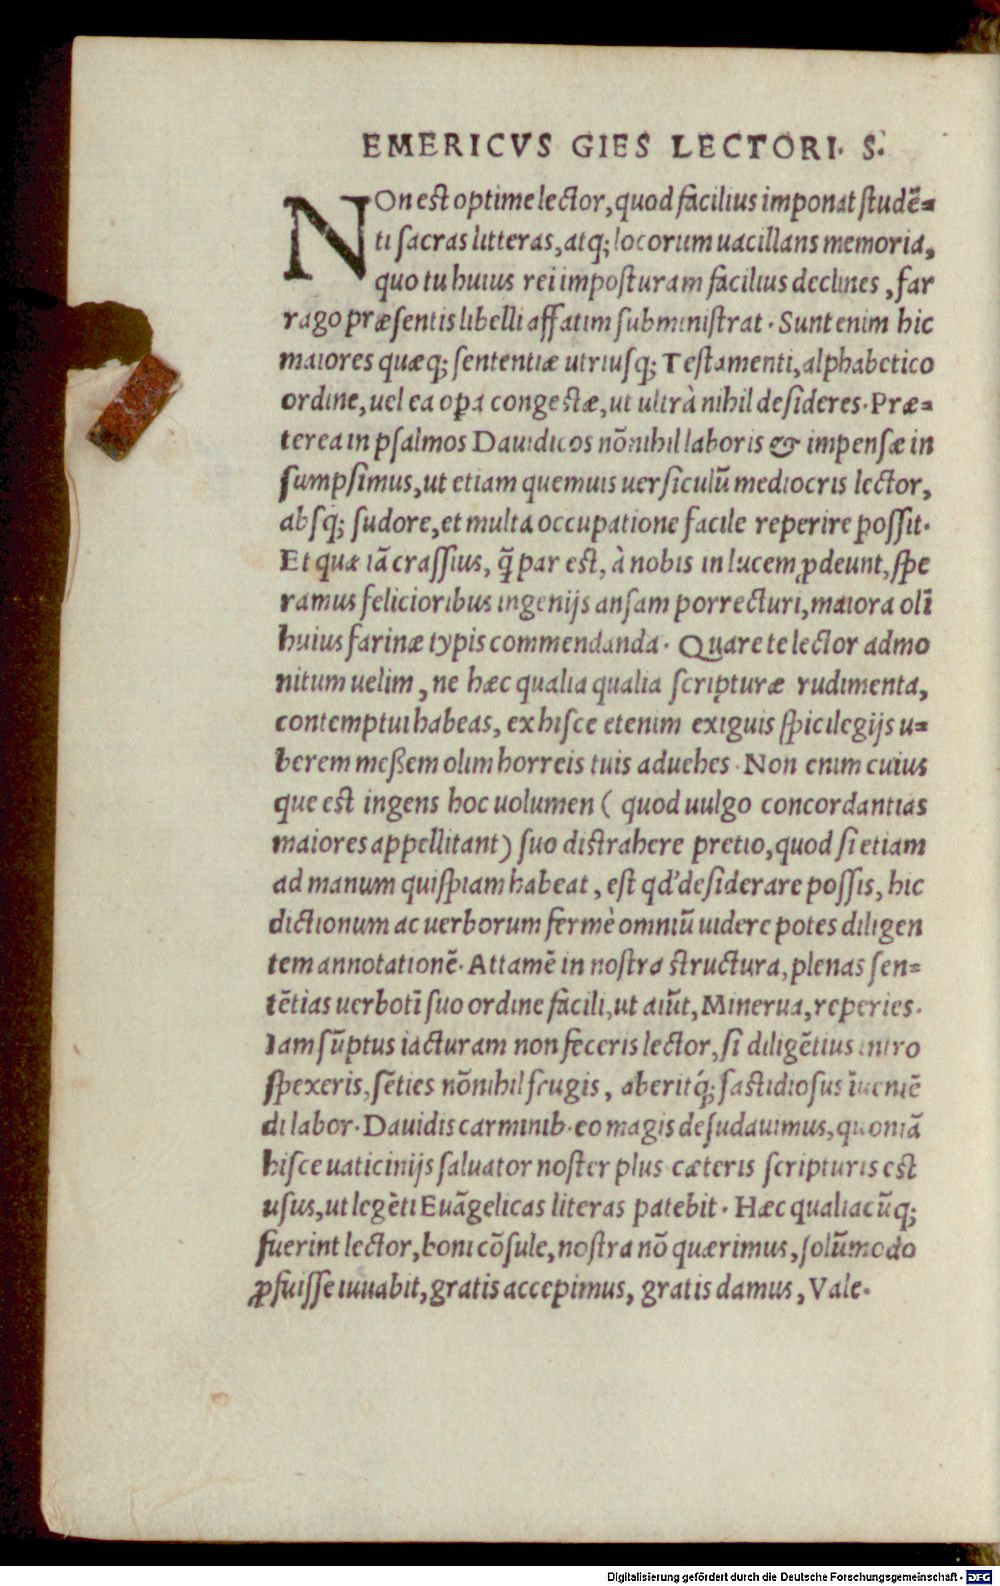 EMERICVS GIES LECTORI. S.
NOn est optime lector, quod facilius imponat studẽ=
ti sacras litteras, atq; locorum uacillans memoria,
quo tu huius rei imposturam facilius declines, far
rago præsentis libelli affatim subministrat. Sunt enim hic
maiores quæq; sententiæ utriusq; Testamenti, alphabetico
ordine, uel ea oꝑa congestæ, ut ultrà nihil desideres. Præ=
terea in psalmos Dauidicos nõnihil laboris & impensæ in
sumpsimus, ut etiam quemuis uersiculũ mediocris lector,
absq; sudore, et multa occupatione facile reperire possit.
Et quæ iã crassius, q̃ par est, à nobis in lucem ꝓdeunt, spe
ramus felicioribus ingenijs ansam porrecturi, maiora olĩ
huius farinæ typis commendanda. Quare te lector admo
nitum uelim, ne hæc qualia qualia scripturæ rudimenta,
contemptui habeas, ex hisce etenim exiguis spicilegijs u=
berem meßem olim horreis tuis aduehes. Non enim cuius
que est ingens hoc uolumen ( quod uulgo concordantias
maiores appellitant) suo distrahere pretio, quod si etiam
ad manum quispiam habeat, est qd' desiderare possis, hic
dictionum ac uerborum fermè omniũ uidere potes diligen
tem annotationẽ. Attamẽ in nostra structura, plenas sen=
tẽtias uerbotĩ suo ordine facili, ut aiũt, Minerua, reperies.
Iam sũptus iacturam non feceris lector, si diligẽtius intro
spexeris, sẽties nõnihil frugis, aberitq́; fastidiosus ĩueniẽ
di labor. Dauidis carminib. eo magis desudauimus, quoniã
hisce uaticinijs saluator noster plus cæteris scripturis est
usus, ut legẽti Euãgelicas literas patebit. Hæc qualiacũq;
fuerint lector, boni cõsule, nostra nõ quærimus, solũmodo
ꝓfuisse iuuabit, gratis accepimus, gratis damus, Vale.
Digitalisierung gefördert durch die Deutsche Forschungsgemeinschaft - DFG